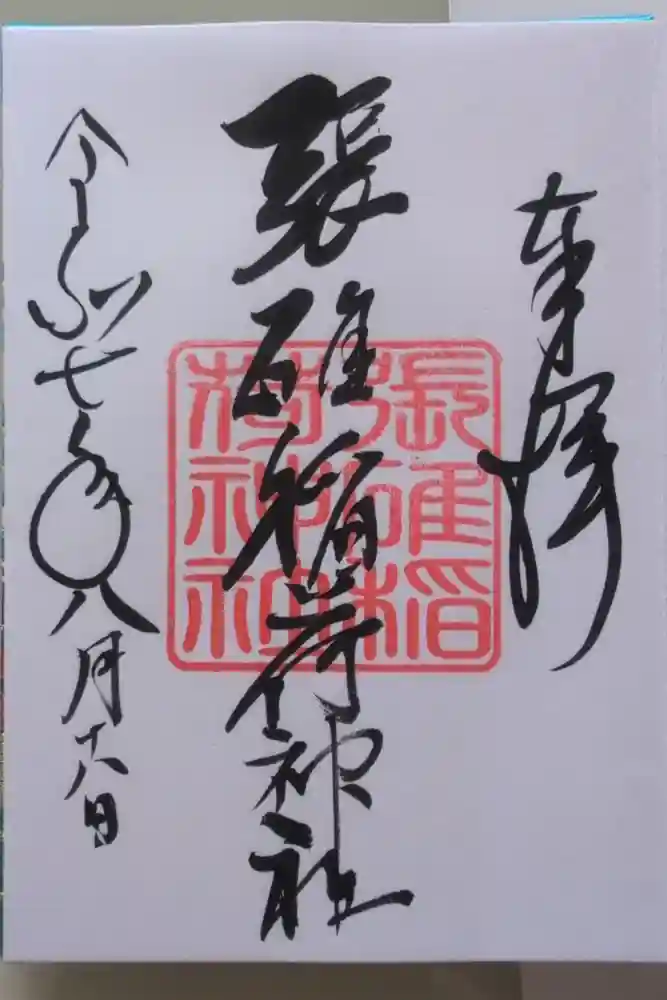 奉拝
張碓稲荷神社
令和七年八月十八日
張碓稲
荷神社